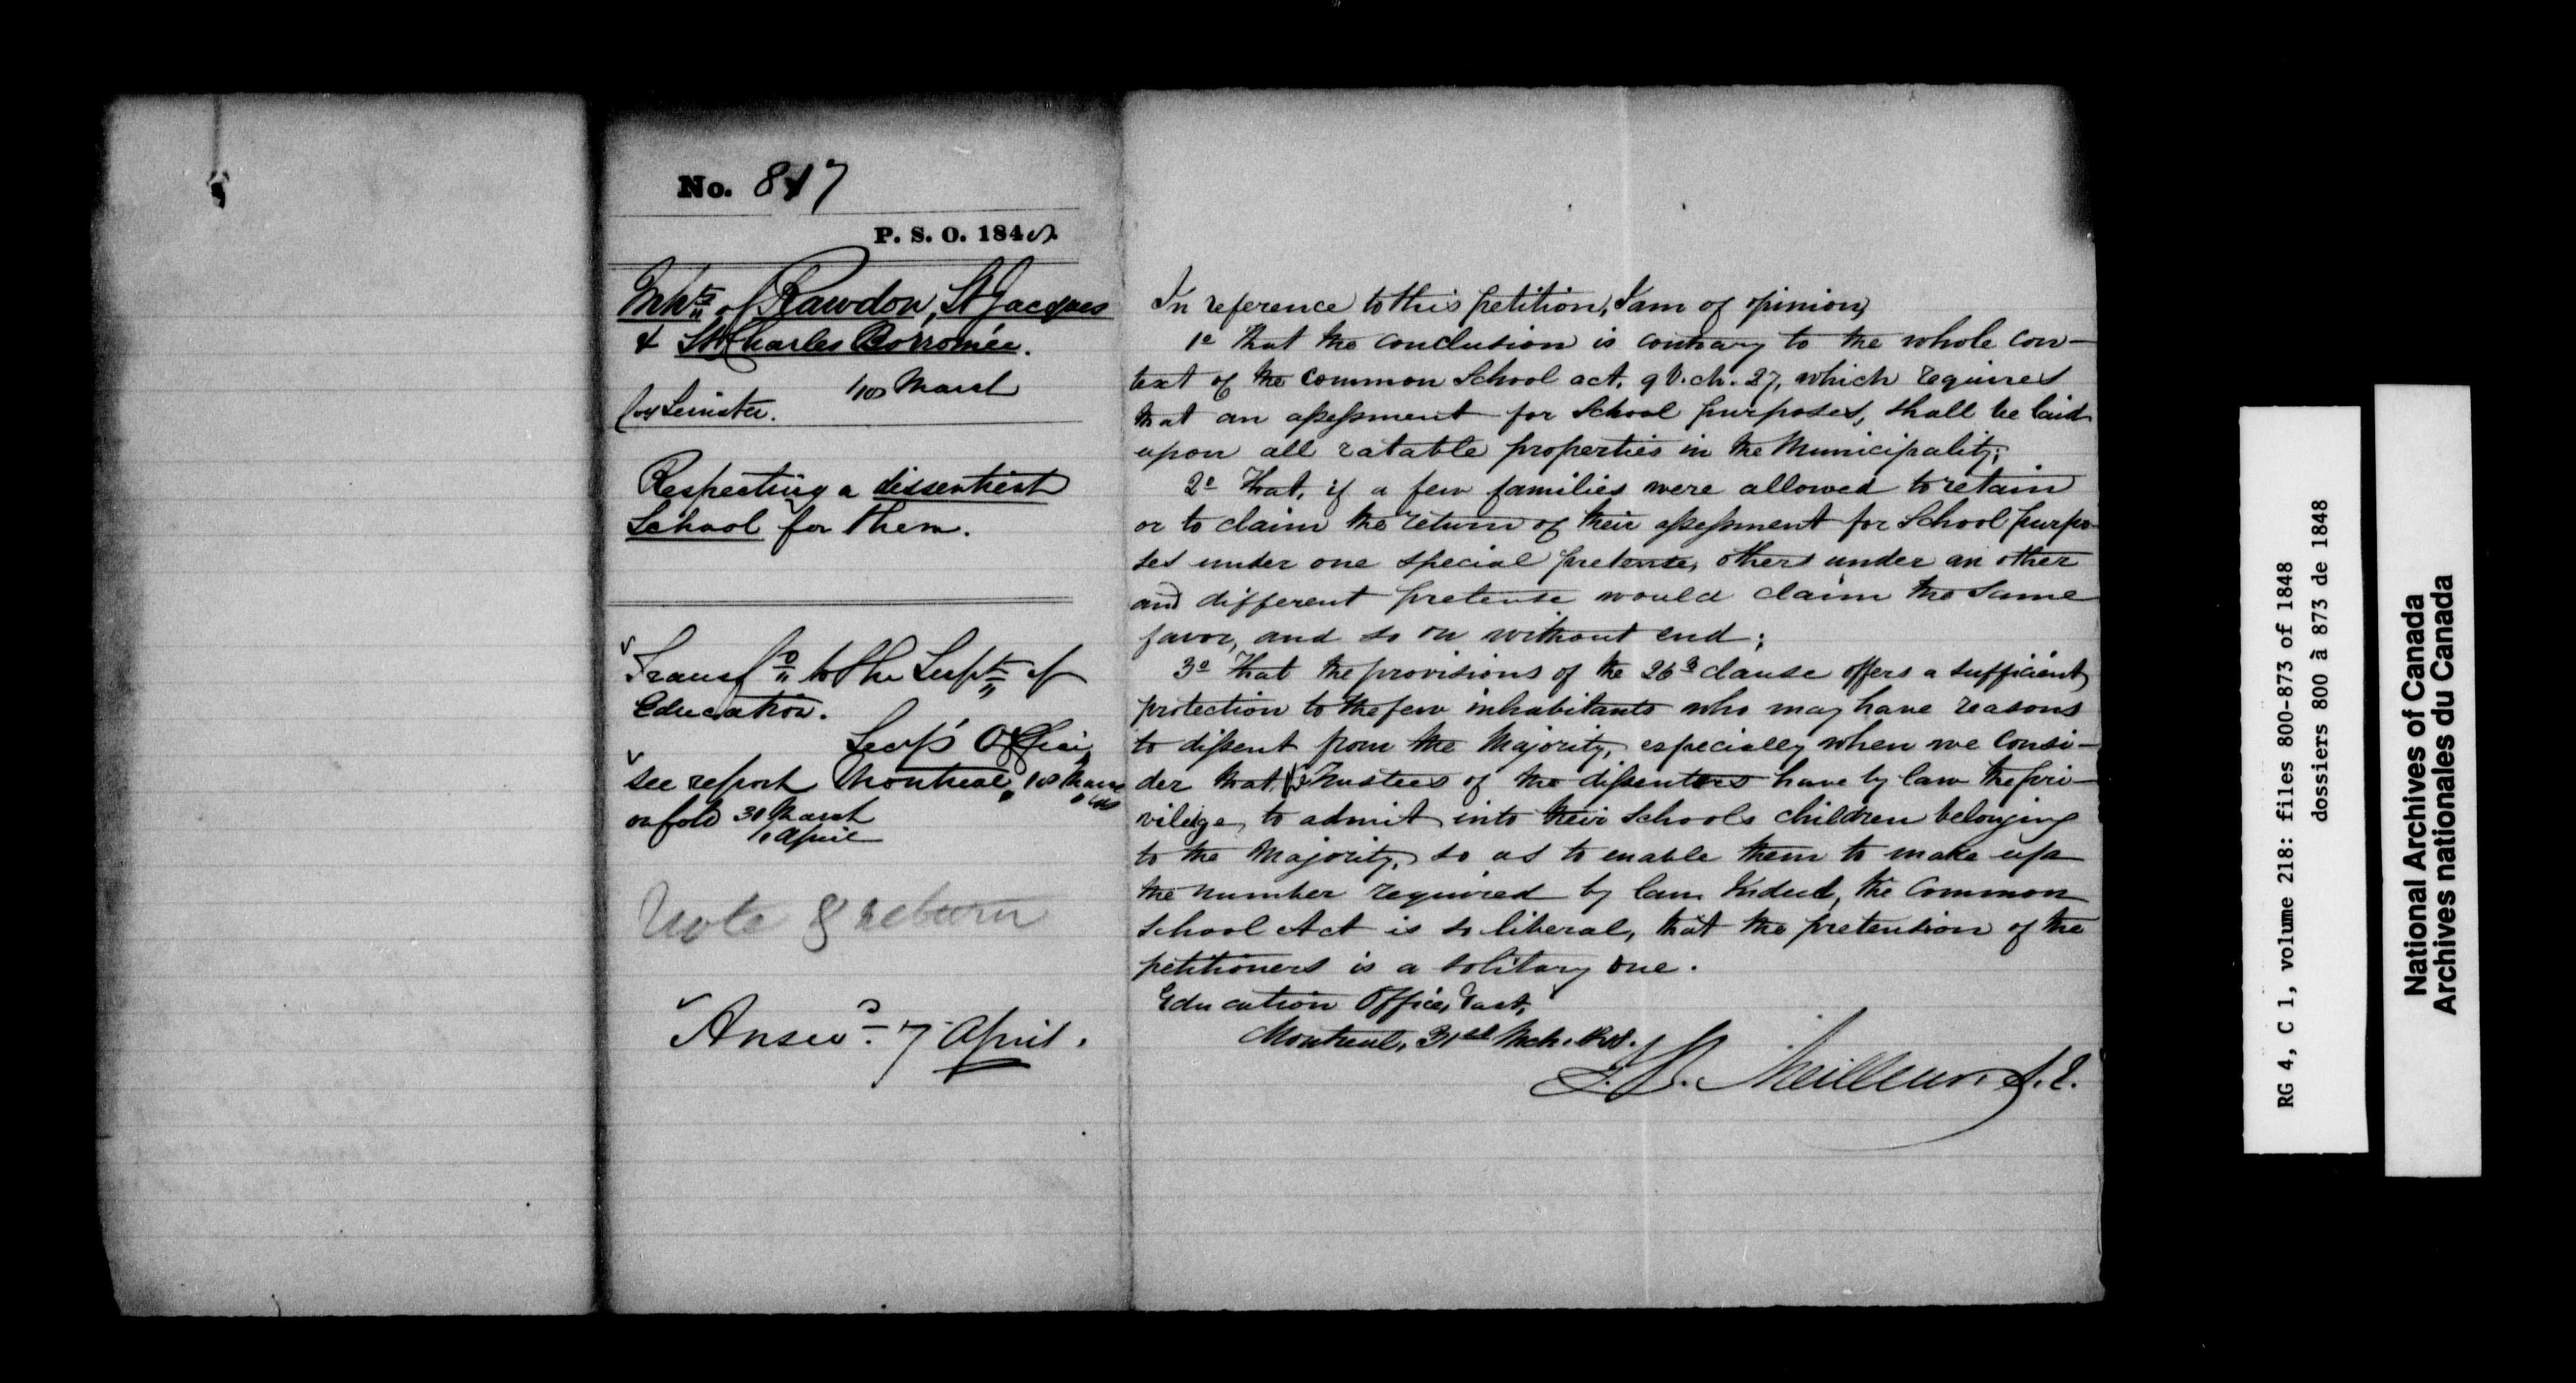 No. 817
P. S. O. 1848
Inhts of Rawdon, St Jacques
& St Charles Borromée.
Co Leinster. 10 March
Respecting a dissentient
School for them.
Transfd to the Supt of
Education.
Secy's Office
Montreal,
see report
on fold 31 March
1 April
Note & return
Answd 7 April.
In reference to this petition, I am of opinion,
1o That the conclusion is contrary to the whole con-
text of the common School act, 9 V. ch. 27, which requires
that an assessment for School purposes, shall be laid
upon all ratable properties in the Municipality;
2o That, if a few families were allowed to retain
or to claim the return of their assessment for School purpo-
ses under one special pretense, others under an other
and different pretense would claim the same
favor, and so on without end;
3o That the provisions of the 26th clause offers a sufficient
protection to the few inhabitants who may have reasons
to dissent from the Majority, especially when we consi-
der that Trustees of the dissenters have by law the pri-
vilege, to admit into their schools children belonging
to the Majority, so as to enable them to make up
the number required by law. Indeed, the Common
School Act is so liberal, that the pretension of the
petitioners is a solitary one.
Education Office, East,
Montreal, 31st Mch. 1848.
J. B. Meilleur, S. E.
RG 4, C 1, volume 218: files 800-873 of 1848
dossiers 800 à 873 de 1848
National Archives of Canada
Archives nationales du Canada